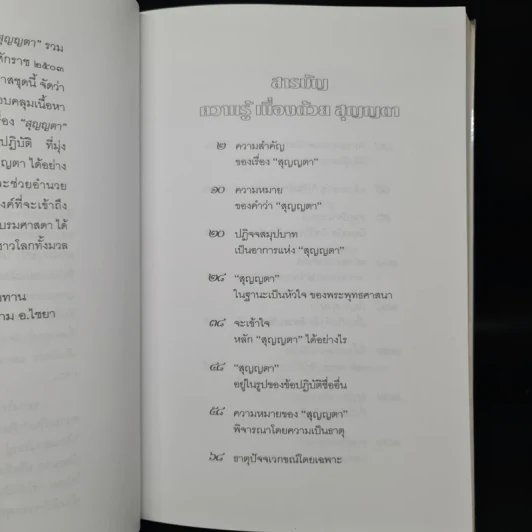 สุญญตา” รวม
ักราช ๒๕๐๓
าสชุดนี้ จัดว่า
อบคลุมเนื้อหา
อง “สุญญตา”
ปฏิบัติ ที่มุ่ง
ญตา ได้อย่าง
ะช่วยอำนวย
งค์ที่จะเข้าถึง
บรมศาสดา ได้
าวโลกทั้งมวล
ทาน
าม อ.ไชยา
สารบัญ
ความรู้ เนื่องด้วย สุญญตา
๒ ความสำคัญ
ของเรื่อง “สุญญตา”
๑๐ ความหมาย
ของคำว่า “สุญญตา”
๒๐ ปฏิจจสมุปบาท
เป็นอาการแห่ง “สุญญตา”
๒๘ “สุญญตา”
ในฐานะเป็นหัวใจ ของพระพุทธศาสนา
๓๘ จะเข้าใจ
หลัก “สุญญตา” ได้อย่างไร
๔๘ “สุญญตา”
อยู่ในรูปของข้อปฏิบัติชื่ออื่น
๕๘ ความหมายของ “สุญญตา”
พิจารณาโดยความเป็นธาตุ
๖๘ ธาตุปัจจเวกขณ์โดยเฉพาะ